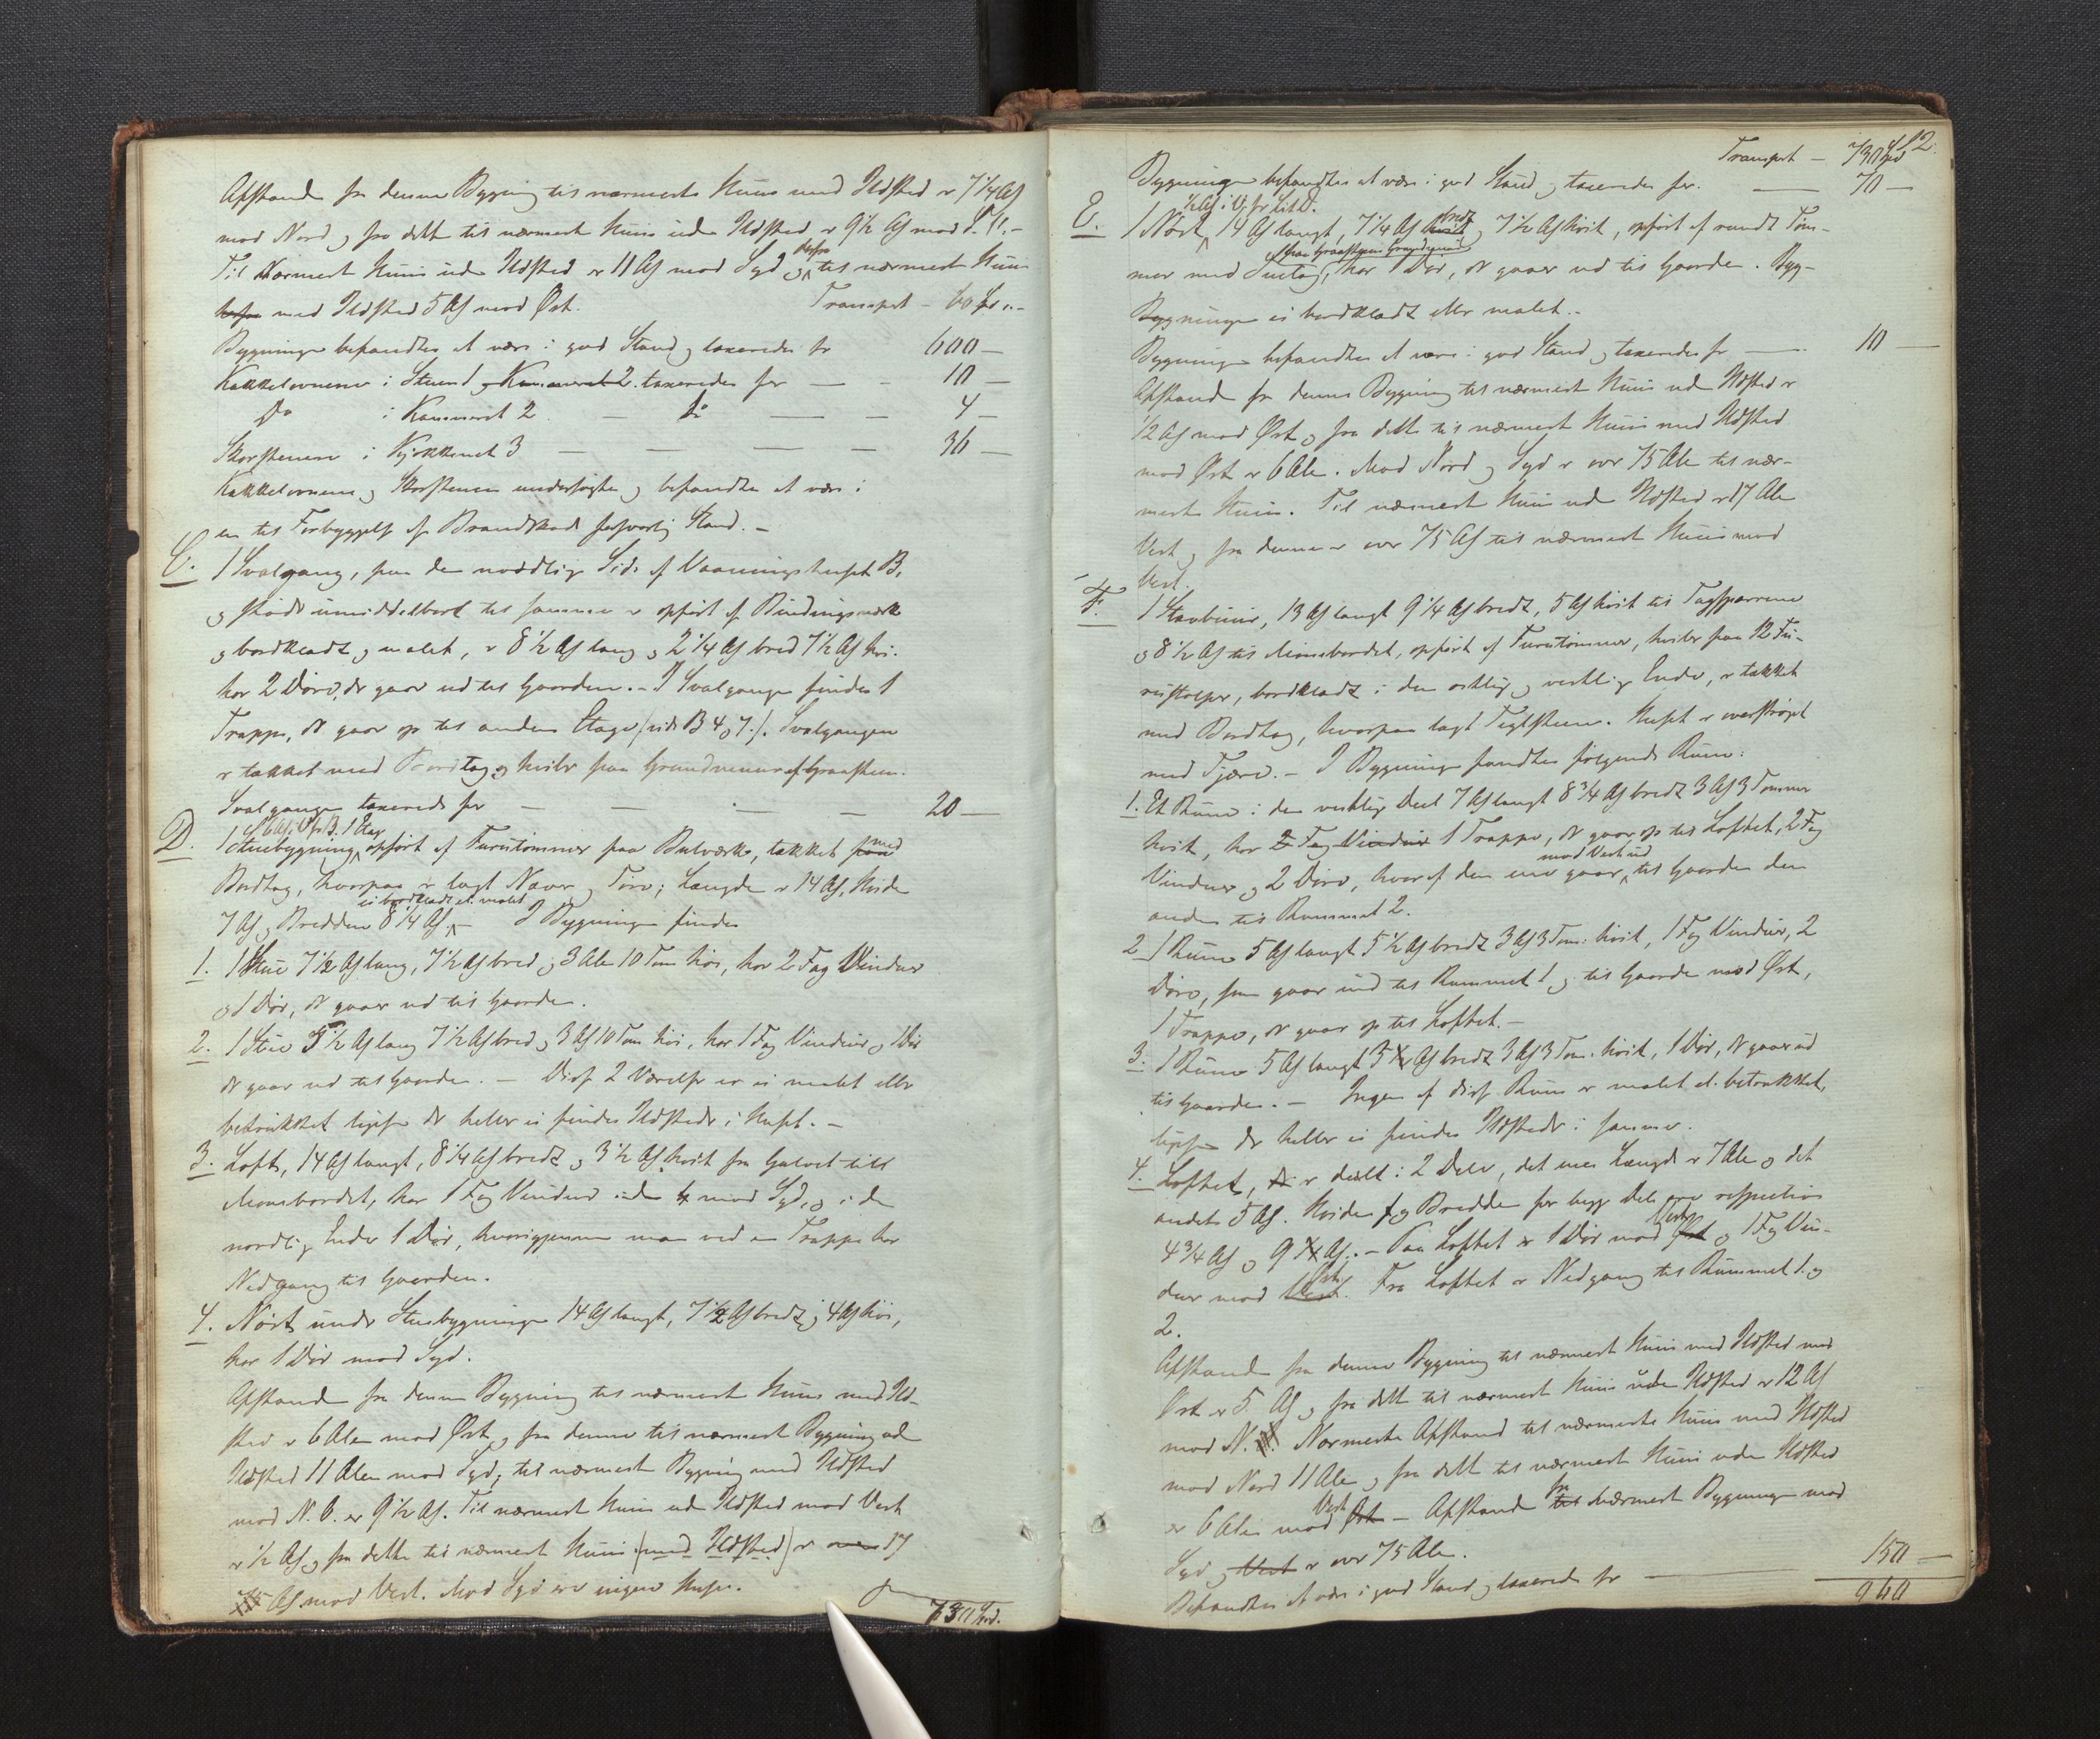 Afstand fra denne Bygning til nærmeste Huus med Ildsted er 7 1/4 Al
mod Nord og fra dette til nærmeste Huus uden Ildsted er 9 1/2 Al mod
Til Nærmeste Huus uden Ildsted er 11 Al mod Syd og derfra til nærmeste Huus
med Ildsted 5 Al mod Øst. Transport - 60
Bygningen befandtes at være i god Stand og taxeredes for 600 —
Kakkelovnene i Stuen 1 og Kammeret 2 taxeredes for — - 10 —
Do i Kammeret 2 — do — - 4 —
Skorstenen i Kjøkkenet 3 — — — — 36 —
Kakkelovnene og Skorstenen undersøgtes og befandtes at være i
en til Forbyggelse af Brandskade forsvarlig Stand. —
C. 1 Svalgang, paa den nordlige Side af Vaaningshuset B,
og stødt umiddelbart til samme er opført af Bindingsværk
og bordklædt og malet, er 8 1/2 Al lang og 2 1/4 Al bred 7 1/2 Al høi.
har 2 Døre, der gaar ud til Gaarden. - I Svalgangen findes 1
Trappe, der gaar op til anden Etage (vide B 4 og 7.). Svalgangen
er tækket med Bordtag og hviler paa Grundmuur af Graasteen.
Svalgangen taxeredes for — — — — 20 —
D. 1 Stuebygning, 1 Etag opført af Furutømmer paa Bulværk, tækket paa med
Bordtag, hvorpaa er lagt Næver og Tørv; Længden er 14 Al, Høiden
7 Al og Bredden 8 1/4 Al, ei bordklædt el. malet - I Bygningen findes
1. 1 Stue 7 1/2 Al lang, 7 1/2 Al bred og 3 Alen 10 Tom høi, har 2 Fag Vinduer
og 1 Dør, der gaaer ud til Gaarden.
2. 1 Stue 5 1/2 Al lang 7 1/2 Al bred og 3 Al 10 Tom høi, har 1 Fag Vinduer og 1 Dør
der gaar ud til Gaarden. — Disse 2 Værelser er ei malet eller
betrukket ligesom der heller ei findes Ildsteder i Huset. -
3. Loft, 14 Al langt, 8 1/4 Al bredt og 3 1/2 Al høit fra Gulvet til
Mønsbordet, har 1 Fag Vinduer mod Syd, og i den
nordlige Ende 1 Dør, hvorigjennem man ved en Trappe har
Nedgang til Gaarden.
4. Nøst under Stuebygningen 14 Al langt, 7 1/2 Al bredt og 4 Al høi,
har 1 Dør mod Syd.
Afstand fra denne Bygning til nærmeste Huus med Ild-
sted er 6 Alen mod Øst og fra denne til nærmeste Bygning ud
Ildsted 11 Alen mod Syd; til nærmeste Bygning med Ildsted
mod N. O. er 9 1/2 Al. Til nærmeste Huus uden Ildsted mod Vest
er 1/2 Al og fra dette til nærmeste Huus (med Ildsted) er over 17
75 Al mod Vest. Mod Syd ere ingen Huse.
730
12.
Transport — 730
Bygningen befandtes at være i god Stand og taxeredes for. — 70 —
E. 1 Nøst, 14 Al langt, 7 1/4 Al høit bredt og 7 1/2 Al høit, opført af rundt Tøm-
mer med Suetag, har 1 Dør, der gaaer ud til Gaarden. Byg-
Bygningen ei bordklædt eller malet. -
Bygningen befandtes at være i god Stand og taxeredes for — 10 —
Afstand fra denne Bygning til nærmeste Huus ud Ildsted er
1/2 Al mod Øst og fra dette til nærmeste Huus med Ildsted
mod Øst er 6 Alen. Mod Nord og Syd er over 75 Alen til nær-
meste Huus. Til nærmeste Huus ud Ildsted er 17 Alen
Vest og fra denne er over 75 Al til nærmeste Huus mod
Vest.
F. 1 Stavbuur, 13 Al langt 9 1/4 Al bredt, 5 Al høit til Tagsparrene
og 8 1/2 Al til Mønsbordet, opført af Furutømmer, hviler paa 12 Fu-
rustolper, bordklædt i den østlige og vestlige Ende, er tækket
med Bordtag, hvorpaa lagt Teglsteen. Huset er overstrøget
med Tjære. - I Bygningen fandtes følgende Rum:
1. Et Rum i den vestlige Deel 7 Al langt 8 3/4 Al bredt 3 Al 3 Tommer
høit, har 2 Fag Vinduer 1 Trappe, der gaar op til Loftet, 2 Fag
Vinduer og 2 Døre, hvoraf den ene gaar mod Vest ud til Gaarden den
anden til Rummet 2.
2. 1 Rum 5 Al langt 5 1/2 Al bredt 3 Al 3 Tom. høit, 1 Fag Vinduer, 2
Døre, som gaar ind til Rummet 1 og til Gaarden mod Øst,
1 Trappe, der gaar op til Loftet. -
3. 1 Rum 5 Al langt 3 Al bredt 3 Al 3 Tom. høit, 1 Dør, der gaar ud
til Gaarden. - Ingen af disse Rum er malet el. betrukket,
ligesom der heller ei findes Ildsteder i samme.
4. Loftet, er deelt i 2 Dele, det enes Længde er 7 Alen og det
andet 5 Al. Høiden og Bredden for begge Dele ere respective
4 3/4 Al og 9 Al. - Paa Loftet er 1 Dør mod Øst Vest og 1 Fag Vin-
duer mod Vest Øst. Fra Loftet er Nedgang til Rummet 1 og
2.
Afstand fra denne Bygning til nærmeste Huus med Ildsted mod
Øst er 5 Al og fra dette til nærmeste Huus uden Ildsted er 12 Al
mod N. Nærmeste Afstand til nærmeste Huus med Ildsted
mod Nord 11 Alen og fra dette til nærmeste Huus uden Ildsted
er 6 Alen mod Øst Vest — Afstand til fra nærmeste Bygninger mod
Syd og Vest er over 75 Alen.
Befandtes at være i god Stand og taxeredes for — 150 —
960